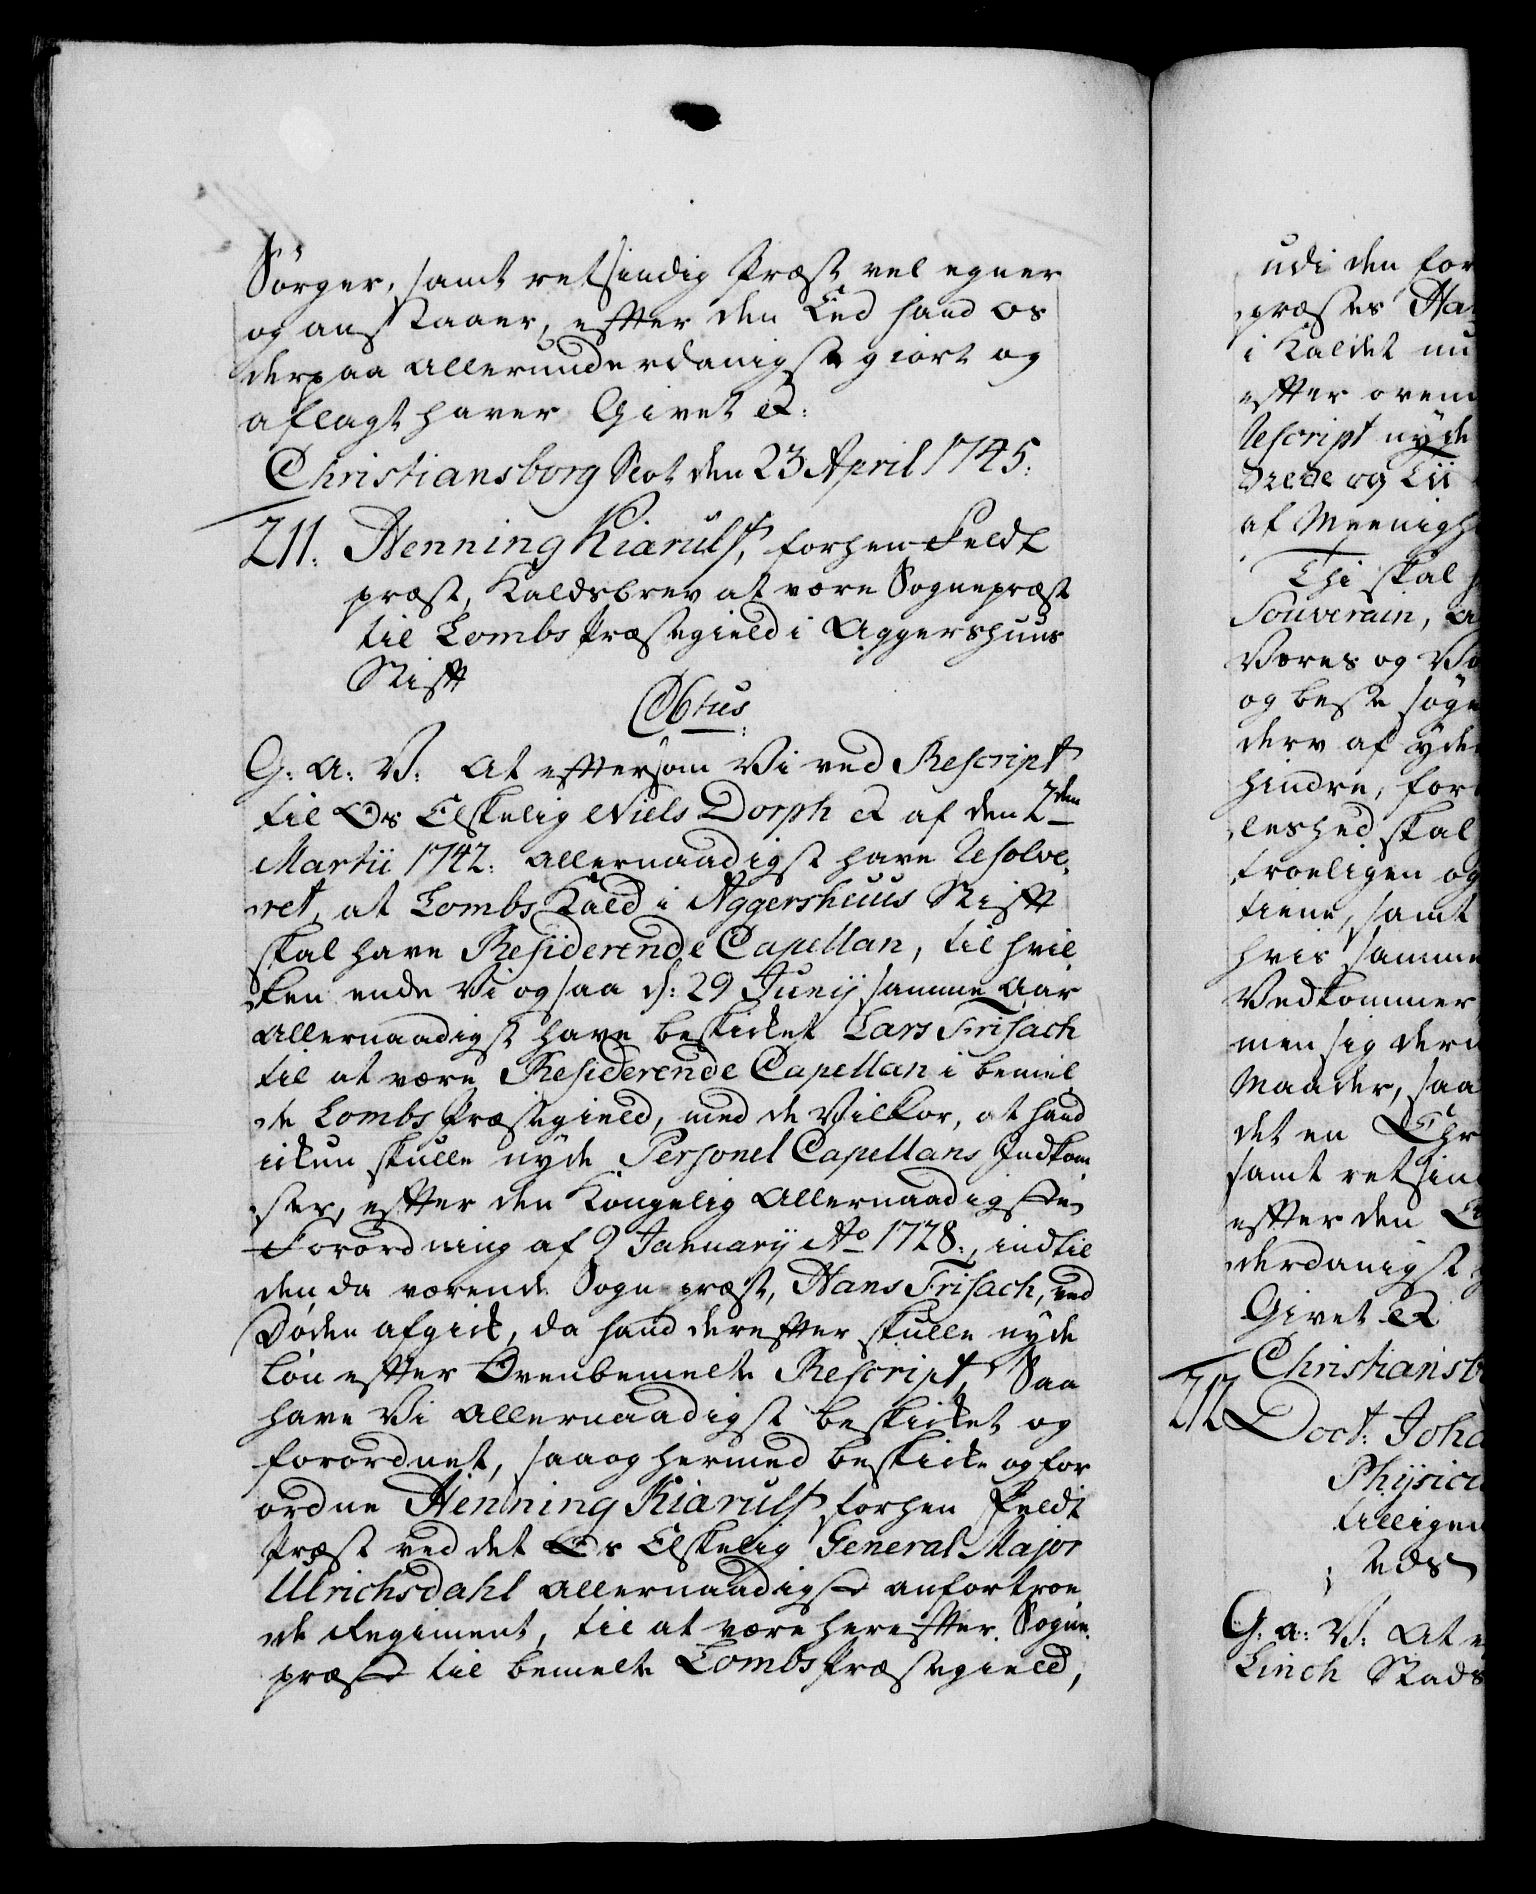 Sørger, samt retsindig Præst vel egner
og anstaaer, efter den Eed hand os
derpaa allerunderdanigst giort og
aflagt haver Givet &c:
Christiansborg Slot den 23 April 1745.
211. Henning Kiærulf, forhen Feldt
præst, Kaldsbrev at være Sognepræst
til Lombs Præstegield i Aggershuus
Stift
C6tus
G: A: V: At eftersom Vi ved Rescript
til Os Elskelig Niels Dorph &c af den 2den
Martii 1742. allernaadigst have Resolve,
ret, at Lombs Kald i Aggershuus Stift
skal have Residerende Capellan, til hvil
ken ende Vi ogsaa d: 29 Junij samme Aar
allernaadigst have beskicket Lars Frisach
til at være Residerende Capellan i bemel,
te Lombs Præstegield, med de Vilkor, at hand
ickun skulle nyde Personel Capellans Indkom
ster, efter den Kongelig allernaadigste
Forordning af 9 Januarij Ao 1728., indtil
den da værende Sognepræst, Hans Frisach, ved
Døden afgick, da hand derefter skulle nyde
løn efter Ovenbemelte Rescript, Saa
have Vi allernaadigst beskicket og
forordnet, saa og hermed beskicke og for
ordne Henning Kiærulf forhen Feldt
Præst ved det Os Elskelig General Major
Ulrichsdahl allernaadigst anfortroe
de Regiment, til at være herefter Sogne
præst til bemelte Lombs Præstegield,
udi den for
præstes Ha
i Kaldet nu
efter oven
Rescript nyde
af Meenigh
Thi skal
Souverain, a
Vores og V
og beste søge
derv af yde
hindre, for
leshed skal
troeligen og
tiene, samt
hvis samme
Vedkommer
men sig der
Maader, saa
det en Chr
samt retsin
efter den E
derdanigst
Givet &c
Christiansb
212 Doct: Joha
Physici
tilligen
steds
G: a: V: At e
Linch Stads